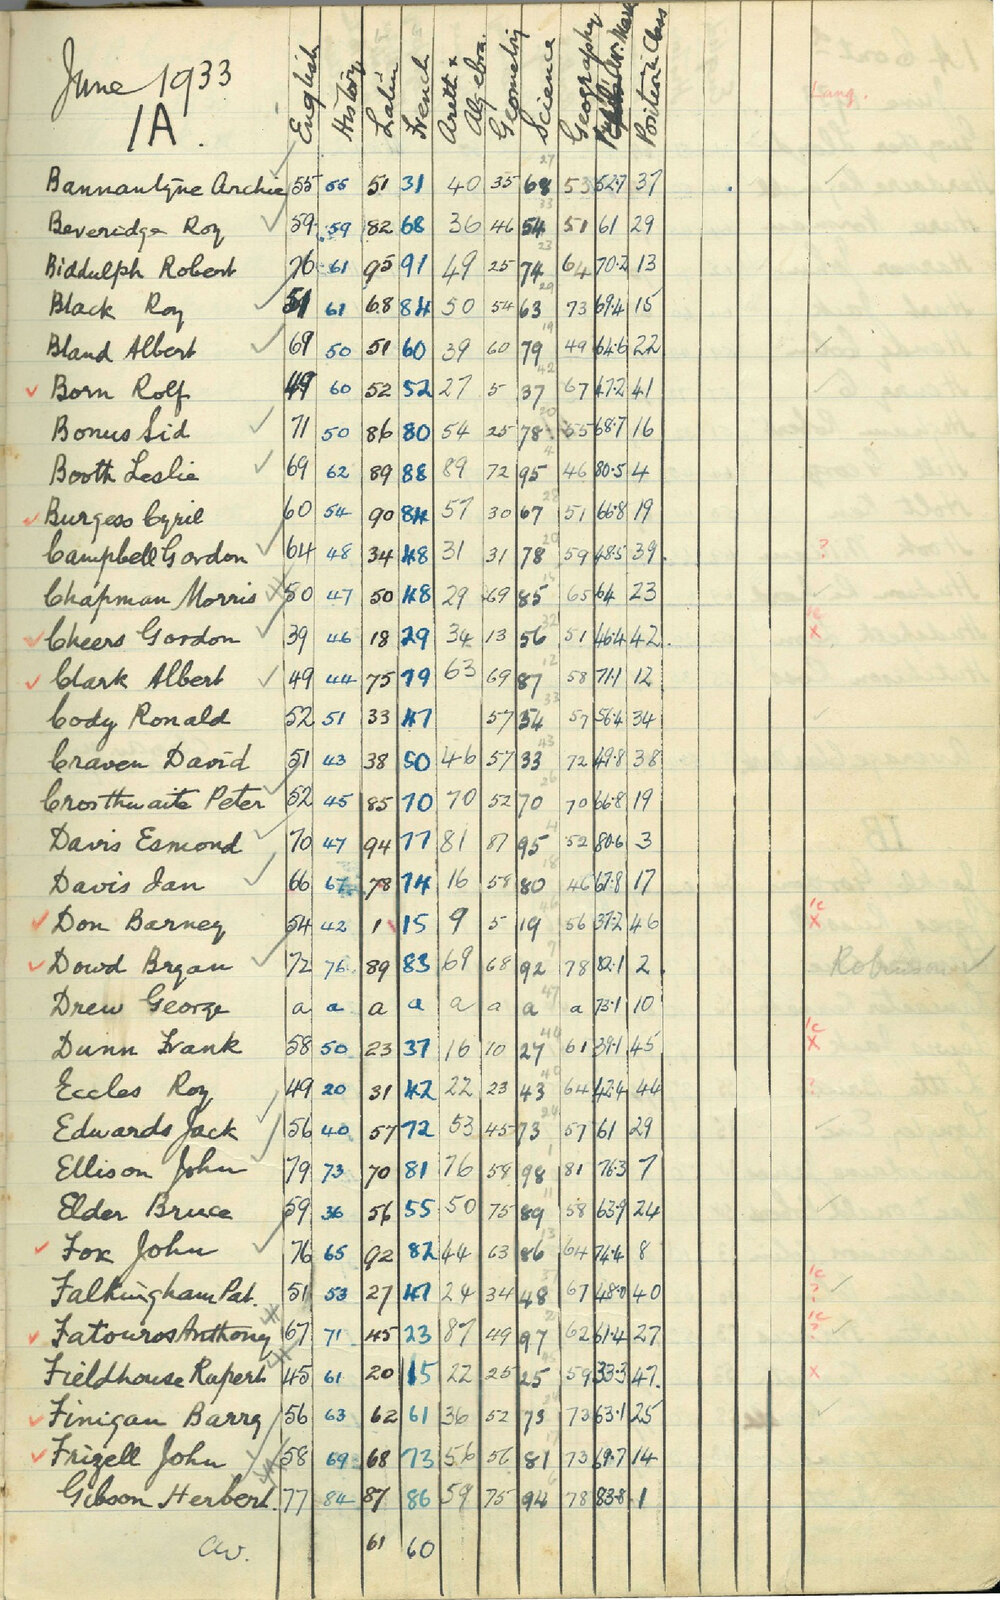 June 1933
1A.
English History Latin French Arith & Algebra. Geometry Science Geography Av. Mark Position in Class
Lang.
27
Bannantyne Archie 55 55 51 31 40 35 68 53 52.7 37
33
Beveridge Roy 59 59 82 68 36 46 54 51 61 29
23
Biddulph Robert 76 61 95 91 49 25 74 64 70.2 13
29
Black Roy 51 61 68 84 50 54 63 73 69.4 15
19
Bland Albert 69 50 51 60 39 60 79 49 64.6 22
42
Born Rolf 49 60 52 52 27 5 37 67 47.2 41
20
Bonus Sid 71 50 86 80 54 25 78 55 68.7 16
4
Booth Leslie 69 62 89 88 89 72 95 46 80.5 4
28
Burgess Cyril 60 54 90 84 57 30 67 51 66.8 19
20
Campbell Gordon 64 48 34 48 31 31 78 59 48.5 39. ?
15
Chapman Morris 50 47 50 48 29 69 85 65 64 23
32 1c
Cheers Gordon 39 46 18 29 34 13 56 51 46.4 42. x
12
Clark Albert 49 44 75 79 63 69 87 58 71.1 12
33
Cody Ronald 52 51 33 47 57 54 57 56.4 34
43
Craven David 51 43 38 50 46 57 33 72 49.8 38
26
Crosthwaite Peter 52 45 85 70 70 52 70 70 66.8 19
4
Davis Esmond 70 47 94 77 81 87 95 52 80.6 3
18
Davis Ian 66 67 78 74 16 58 80 46 67.8 17
46 1c
Don Barney 54 42 1 15 9 5 19 56 37.2 46 x
7
Dowd Bryan 72 76 89 83 69 68 92 78 82.1 2. Robinson
47
Drew George a a a a a a a a 73.1 10
44 1c
Dunn Frank 58 50 23 37 16 10 27 61 39.1 45 x
40
Eccles Roy 49 20 31 42 22 23 43 64 42.4 44
24
Edwards Jack 56 40 57 72 53 45 73 57 61 29
1
Ellison John 79 73 70 81 76 58 98 81 76.3 7
11
Elder Bruce 59 36 56 55 50 75 89 58 63.9 24
13
Fox John 76 65 92 82 44 63 86 64 74.4 8
37 1c
Falkingham Pat. 51 53 27 47 24 34 48 67 48.0 40 ?
2 1c
Fatouros Anthony 67 71 45 23 87 49 97 62 61.4 27 ?
Fieldhouse Rupert 45 61 20 15 22 25 25 59 33.3 47. x
24
Finigan Barry 56 63 62 61 36 52 73 73 63.1 25
17
Frizell John 58 69 68 73 56 56 81 73 69.7 14
6
Gibson Herbert. 77 84 87 86 59 75 94 78 83.8 1
av. 61 60